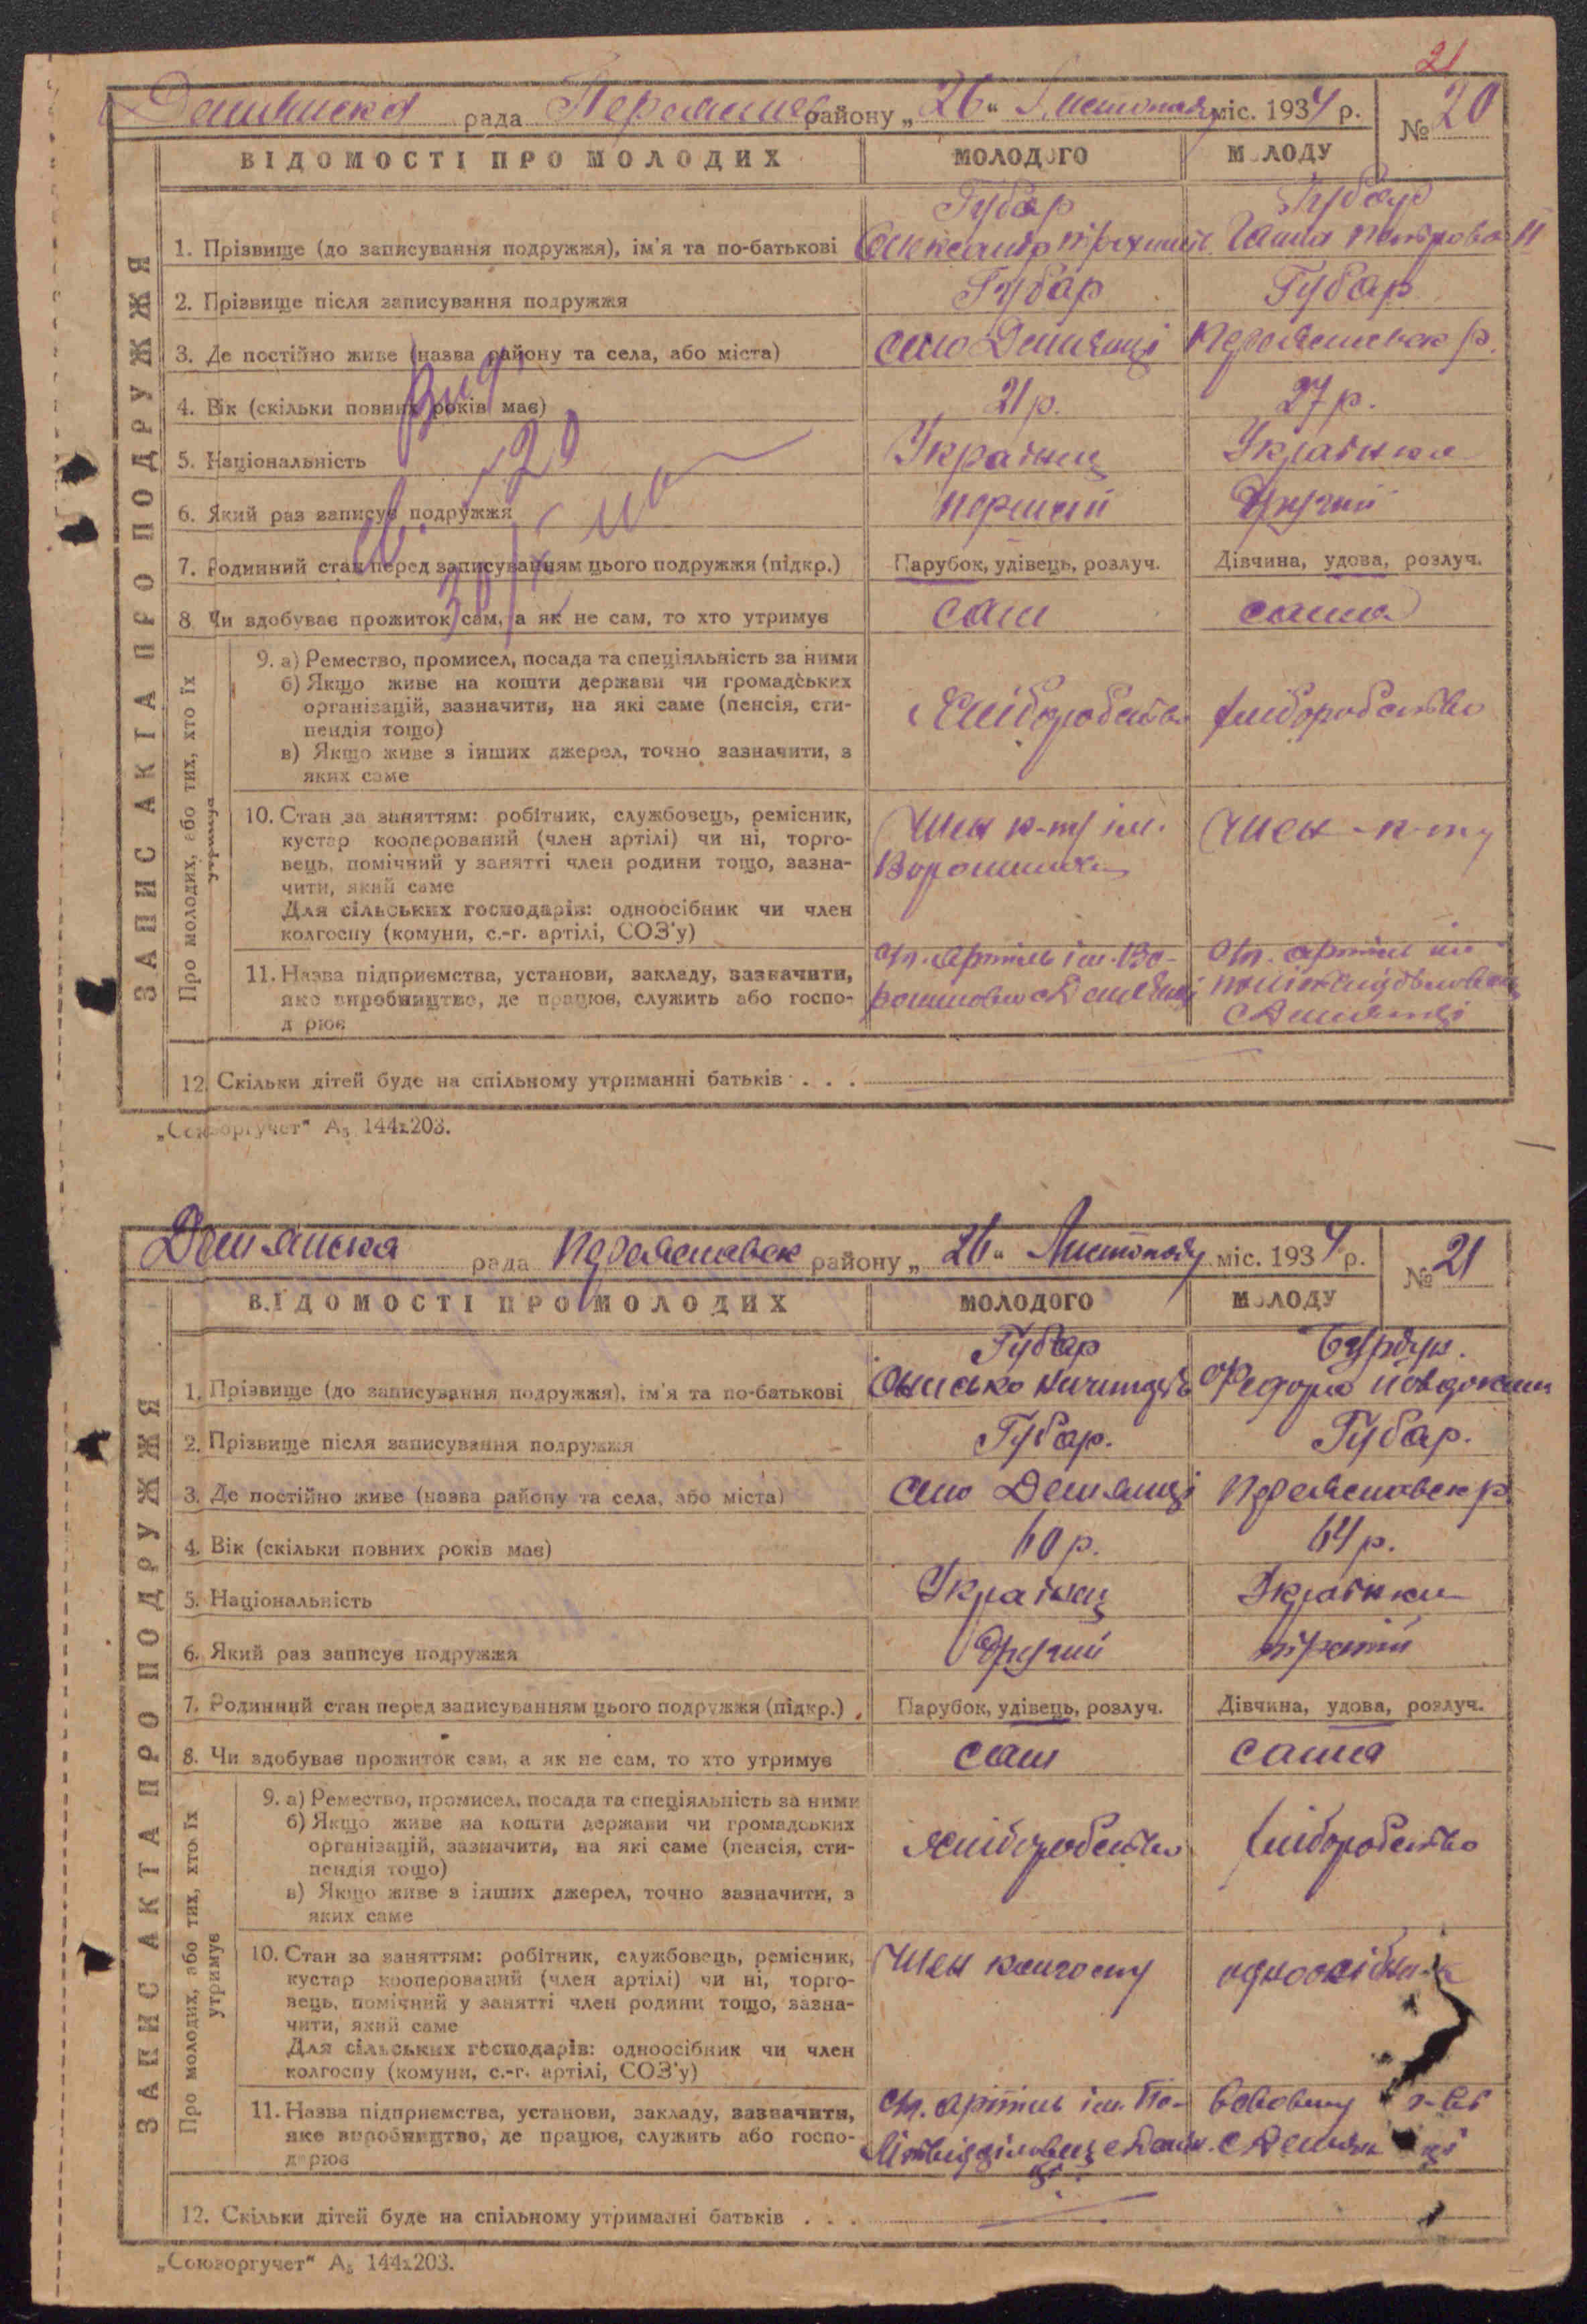 21
Дем'янська рада Переяслав району „26“ Листопада міс. 1934 р. № 20
ВІДОМОСТІ ПРО МОЛОДИХ МОЛОДОГО МОЛОДУ
ЗАПИС АКТА ПРО ПОДРУЖЖЯ
Губар
1. Прізвище (до записування подружжя), ім'я та по-батькові Олександр Петрова
2. Прізвище після записування подружжя Губар Губар
3. Де постійно живе (назва району та села, або міста) село Дем'янці Переяславськ р.
4. Вік (скільки повних років має) 21 р. 27 р.
5. Національність Українец Українка
6. Який раз записує подружжя перший другий
7. Родинний стан перед записуванням цього подружжя (підкр.) Парубок, удівець, розлуч. Дівчина, удова, розлуч.
8. Чи здобуває прожиток сам, а як не сам, то хто утримує сам сама
Про молодих, або тих, хто їх
утримує
9. а) Ремество, промисел, посада та спеціяльність за ними
б) Якщо живе на кошти держави чи громадських
організацій, зазначити, на які саме (пенсія, сти- хліборобство хліборобство
пендія тощо)
в) Якщо живе з інших джерел, точно зазначити, з
яких саме
10. Стан за заняттям: робітник, службовець, ремісник, Член к-ту ім. Член к-ту
кустар кооперований (член артілі) чи ні, торго-
вець, помічний у занятті член родини тощо, зазна-
чити, який саме
Для сільських господарів: одноосібник чи член
колгоспу (комуни, с.-г. артілі, СОЗ'у)
11. Назва підприємства, установи, закладу, зазначити, артіль ім. Во- артіль ім
яке виробництво, де працює, служить або госпо- рошилова с Дем'янці політвідділовець
дарює с Дем'янці
12. Скільки дітей буде на спільному утриманні батьків . . .
„Союзоргучет“ А₅ 144х203.
Дем'янська рада Переяславськ району „26“ Листопада міс. 1934 р. № 21
ВІДОМОСТІ ПРО МОЛОДИХ МОЛОДОГО МОЛОДУ
ЗАПИС АКТА ПРО ПОДРУЖЖЯ
Губар Бурдун.
1. Прізвище (до записування подружжя), ім'я та по-батькові Онисько
2. Прізвище після записування подружжя Губар. Губар.
3. Де постійно живе (назва району та села, або міста) село Дем'янці Переяславськ р
4. Вік (скільки повних років має) 60 р. 64 р.
5. Національність Українец Українка
6. Який раз записує подружжя другий третій
7. Родинний стан перед записуванням цього подружжя (підкр.) Парубок, удівець, розлуч. Дівчина, удова, розлуч.
8. Чи здобуває прожиток сам, а як не сам, то хто утримує сам сама
Про молодих, або тих, хто їх
утримує
9. а) Ремество, промисел, посада та спеціяльність за ними
б) Якщо живе на кошти держави чи громадських
організацій, зазначити, на які саме (пенсія, сти- хліборобство хліборобство
пендія тощо)
в) Якщо живе з інших джерел, точно зазначити, з
яких саме
10. Стан за заняттям: робітник, службовець, ремісник, Член колгоспу одноосібник
кустар кооперований (член артілі) чи ні, торго-
вець, помічний у занятті член родини тощо, зазна-
чити, який саме
Для сільських господарів: одноосібник чи член
колгоспу (комуни, с.-г. артілі, СОЗ'у)
11. Назва підприємства, установи, закладу, зазначити, артіль ім. По-
яке виробництво, де працює, служить або госпо- літвідділовець с Дем'ян. с Дем'янці
дарює ці
12. Скільки дітей буде на спільному утриманні батьків . . .
„Союзоргучет“ А₅ 144х203.